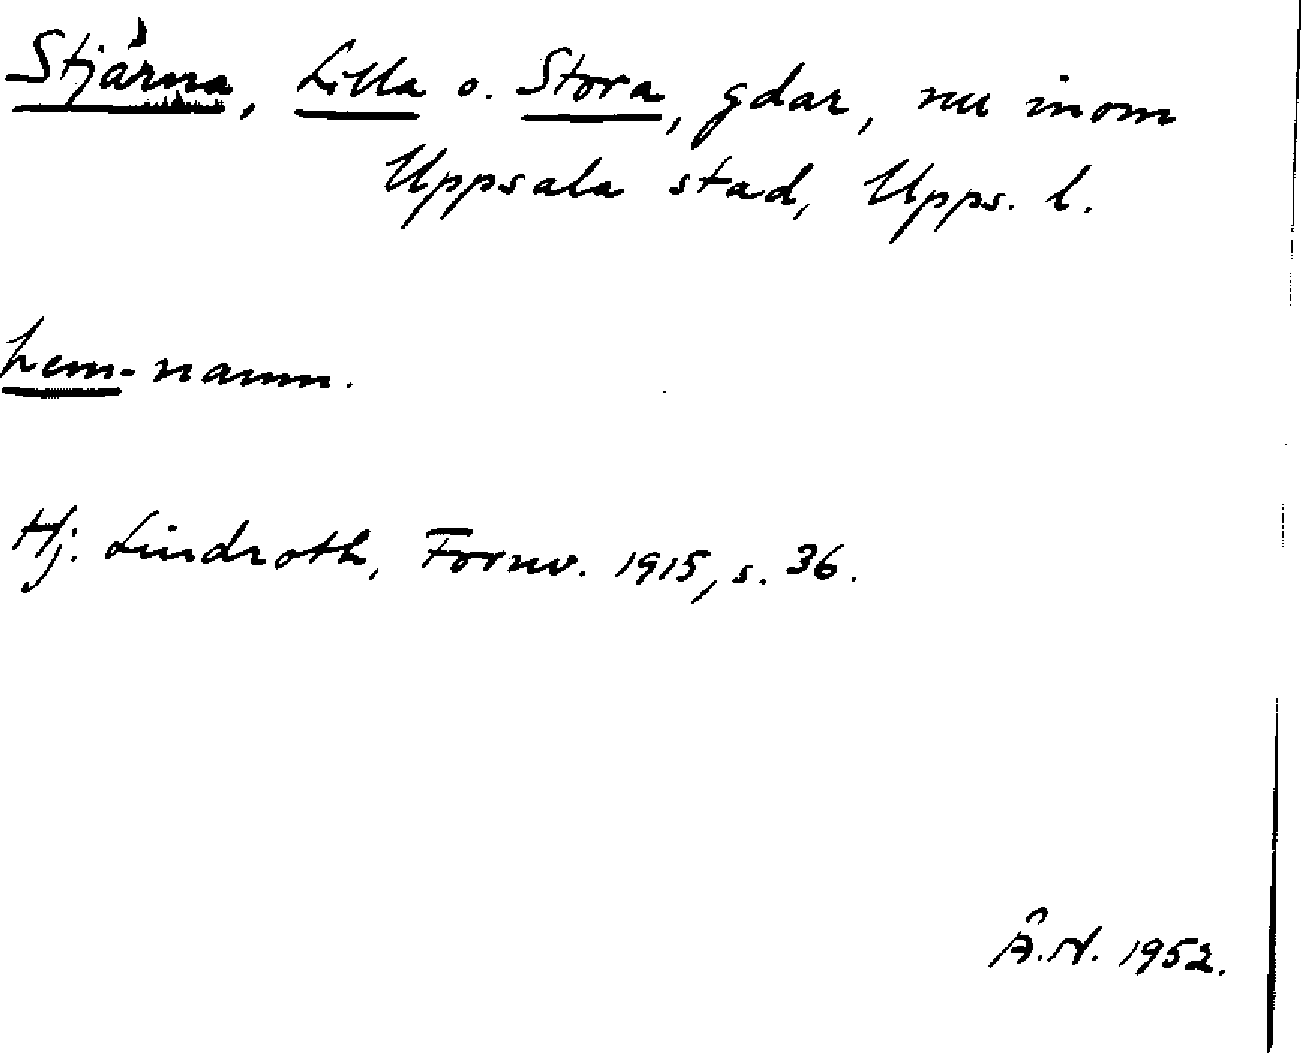 Stjärna, Lilla o. Stora, gdar, nu inom
Uppsala stad, Upps. l.
hem-namn.
Hj. Lindroth, Fornv. 1915, s. 36.
Å.N. 1952.